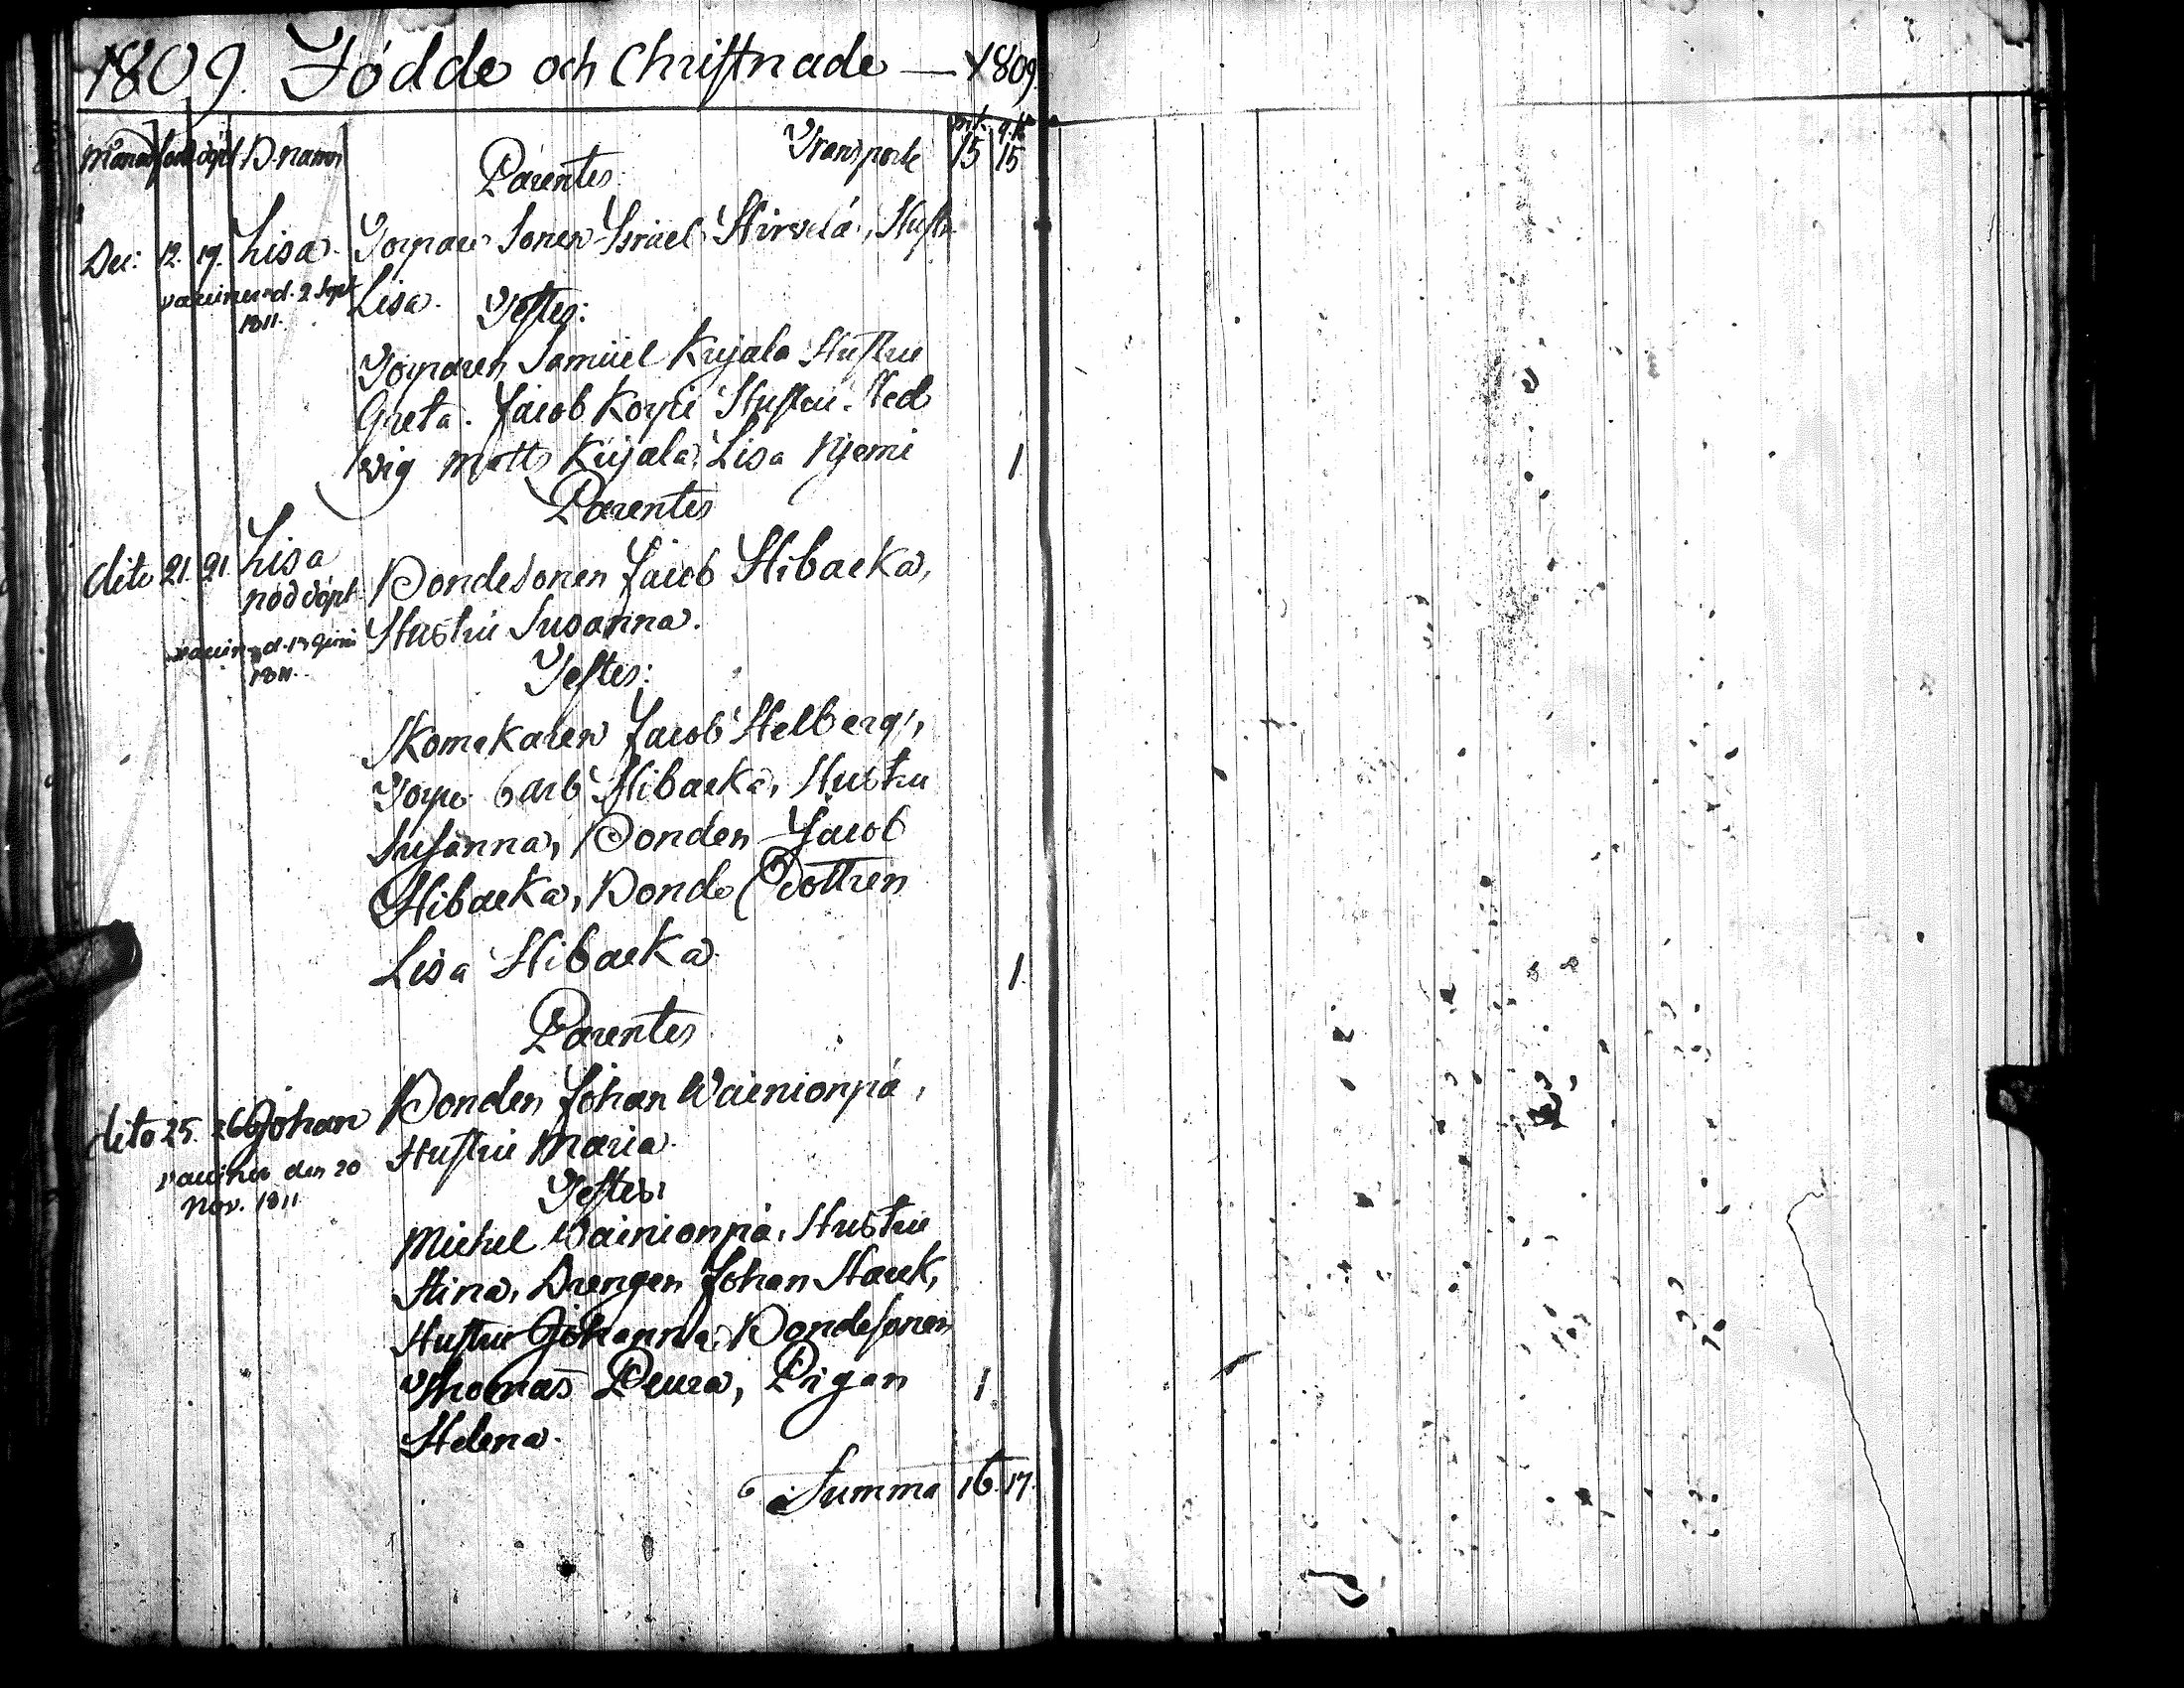 1809. Födde och Christnade — 1809.
Månad född döpt B. namn Parentes: Transporte 15 15
m.k. q.k.
Dec: 12. 19. Lisa. Torpare Sonen Israel Hirvelä, Hustr.
vaccinerad. 2 Sept. Lisa. Testes:
1811.
Torparen Samuel Kujala Hustru
Greta. Jacob Korpi Hustru Hed
vig Matts Kujala, Lisa Njemi 1
Parentes
dito 21. 21. Lisa Bondesonen Jacob Hibacka,
nöddöpt
Hustru Susanna.
1811.
Testes:
Skomakaren Jacob Helberg,
Hibacka, Hustru
Susanna, Bonden Jacob
Hibacka, Bonde Dottren
Lisa Hibacka 1.
Parentes
dito 25. 26 Johan Bonden Johan Wainionpä,
Hustru Maria.
vacciner den 20
Nov. 1811
Testes:
Michel Wainionpä, Hustru
Stina, Drengen Johan Starck,
Hustru Johanna, Bondesonen
Thomas Peura, Pigan 1
Helena.
Summa 16. 17.